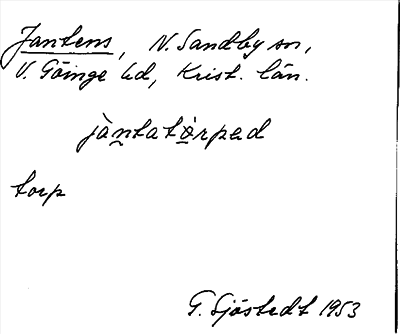 Jantens, N. Sandby sn,
V. Göinge hd, Krist. län.
jànta tòrpad
torp
G. Sjöstedt 1953